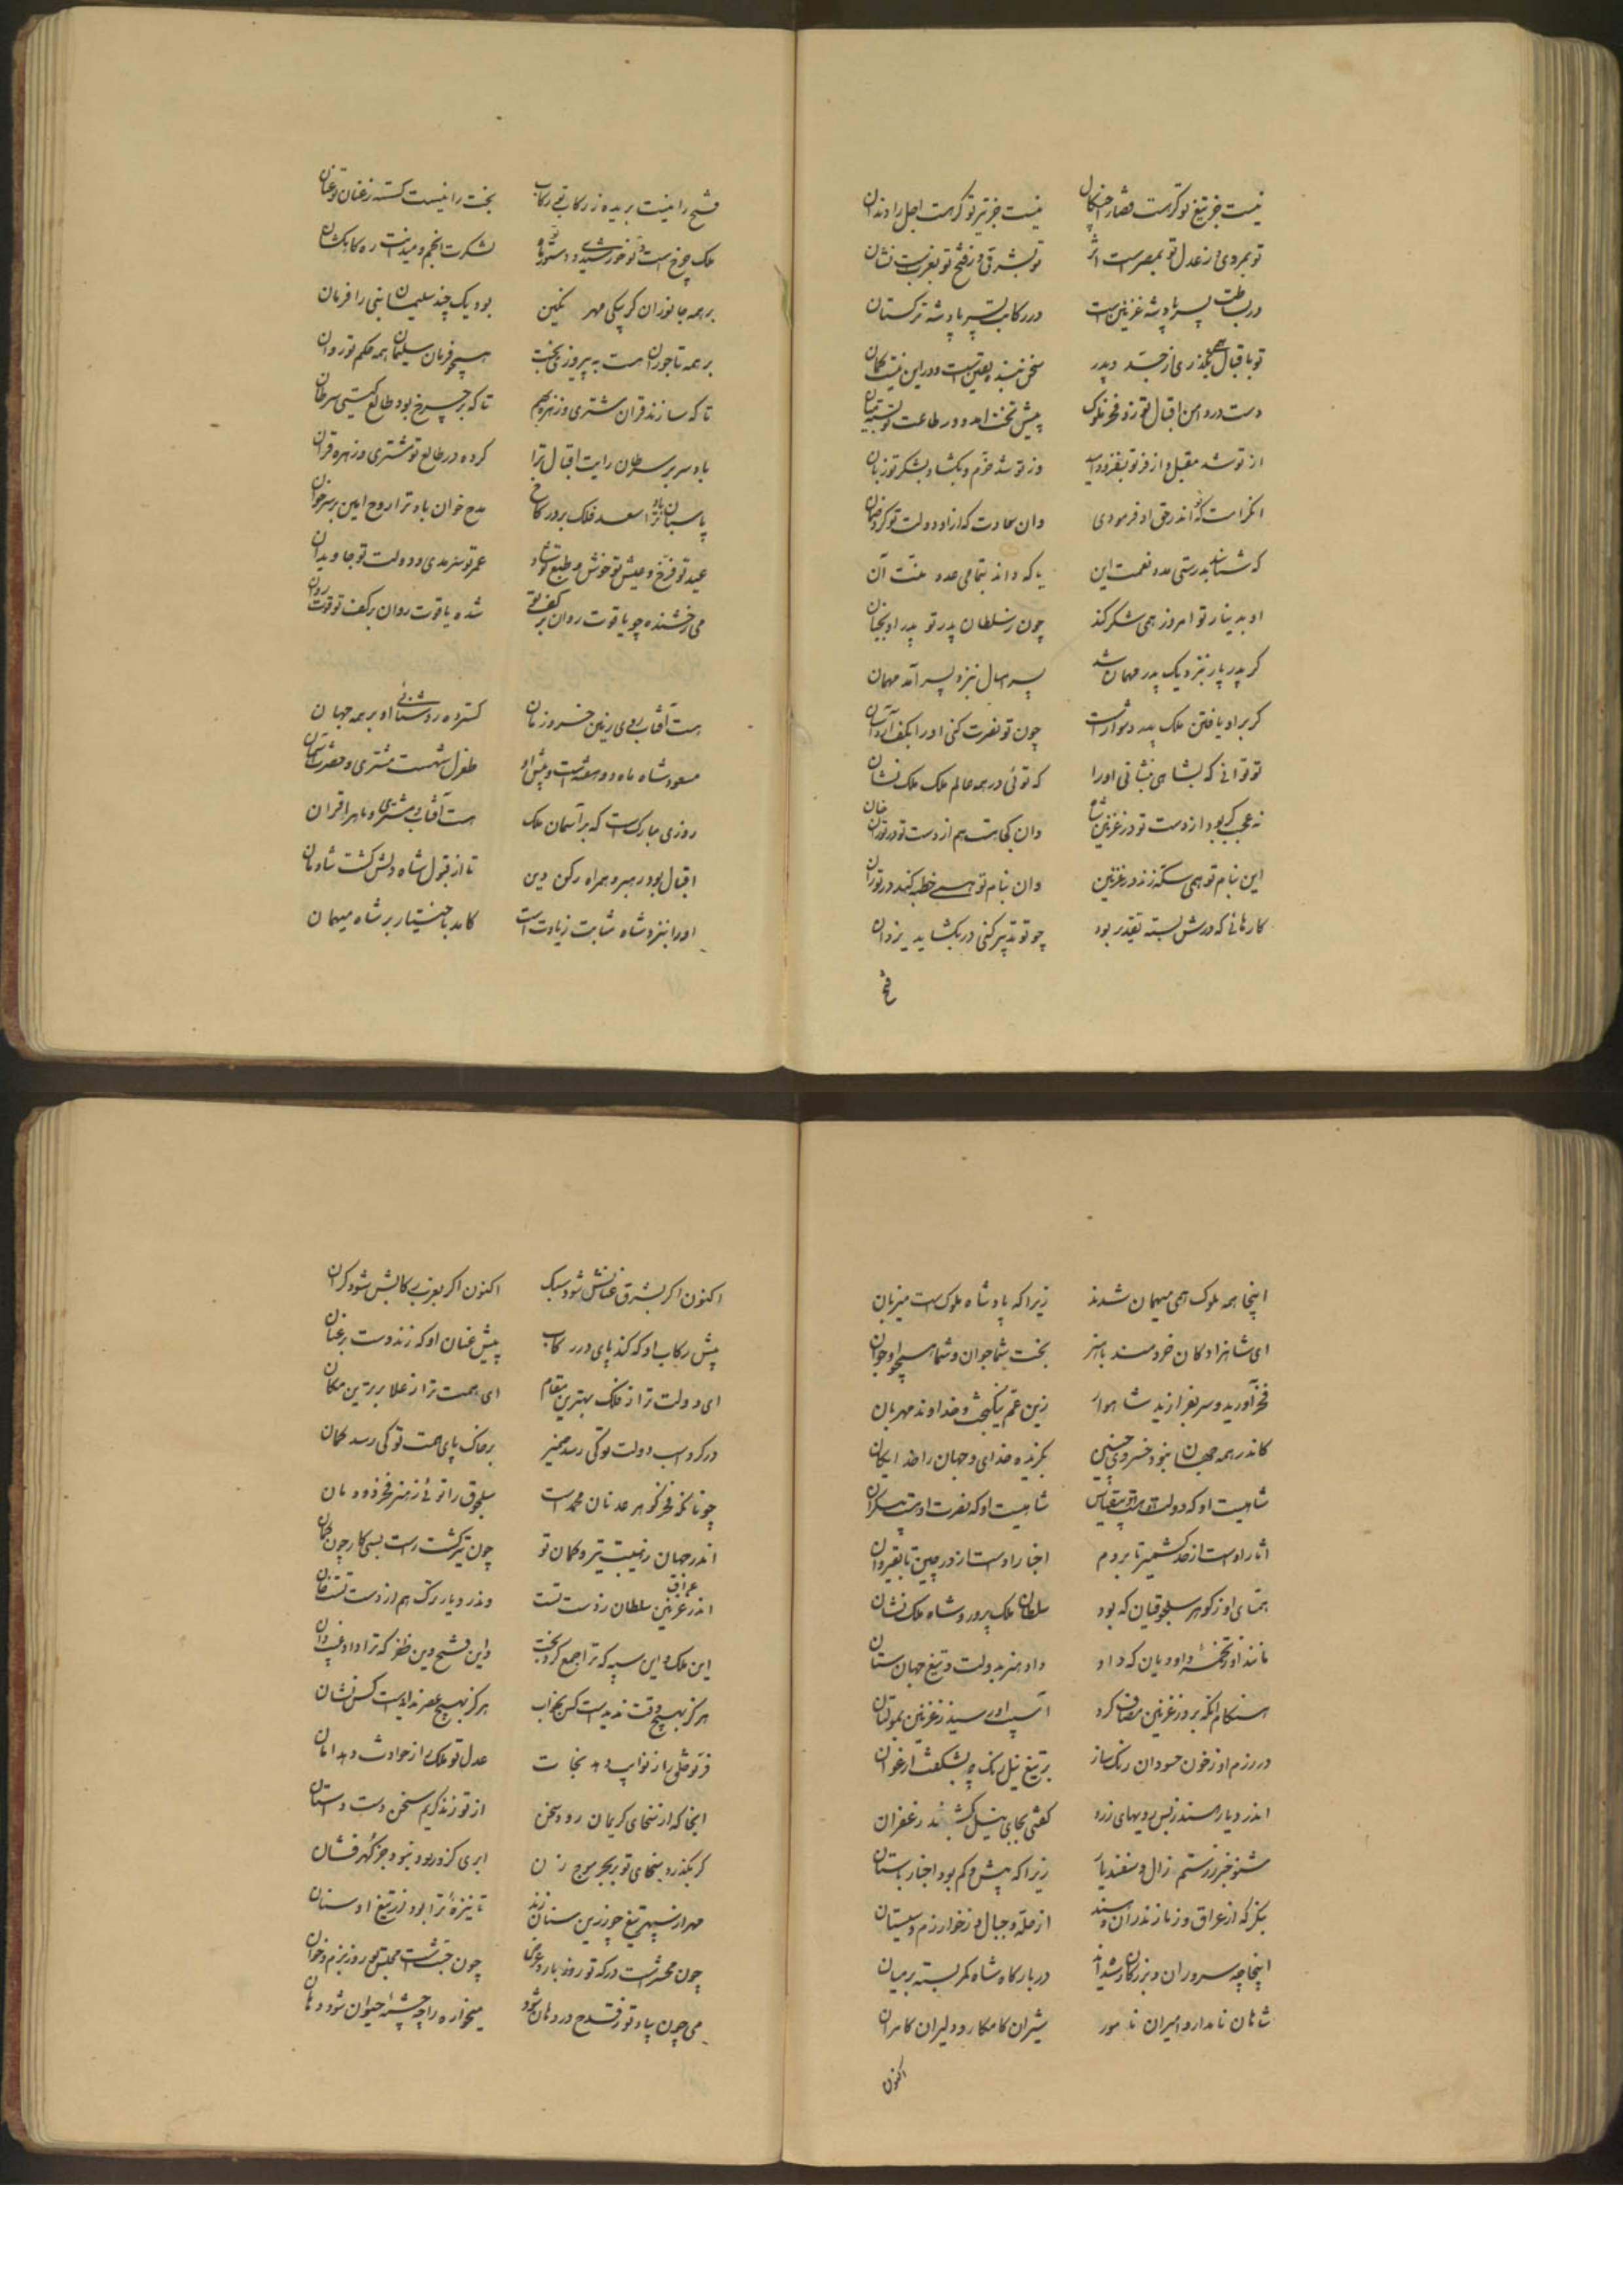 نیست جز تیغ تو گر هست قضا را چنگال نیست جز تیر تو گر هست اجل را دندان
تو بمروی و ز عدل تو بمصر است اثر تو بشرق و ز فتح تو بغرب است نشان
در بساطت پسر پادشه غزنین است در رکابت پسر پادشه ترکستان
تو باقبال همی بگذری از جد و پدر سخن بنده یقین است و در این نیست گمان
دست در دامن اقبال تو زد فخر ملوک پیش تخت آمد و در طاعت تو بست میان
از تو شد مقبل و از فر تو بفزود ادب وز تو شد خرم و بگشاد بشکر تو زبان
آن کرامت که تو اندر حق او فرمودی وان سعادت که از او دولت تو کرد ضمان
که شناسد بدرستی عدد نعمت این یا که داند بتمامی عدد منت آن
او بدینار تو امروز همی شکر کند چون ز سلطان پدر تو پدر او بجنان
گر پدر پار بنزدیک پدر مهمان شد پسر امسال بنزد پسر آمد مهمان
گر بر او یافتن ملک پدر دشوار است چون تو نصرت کنی او را بکف آرد آسان
تو توانی که بشاهی بنشانی او را که توئی در همه عالم ملک ملک نشان
نه عجب گر بود از دست تو در غزنین شاه وان کجا هست هم از دست تو در توران خان
این بنام تو همی سکه زند در غزنین وان بنام تو همی خطبه کند در توران
کارهائی که درش بسته تقدیر بود چو تو تدبیر کنی در بگشاید یزدان
فتح
فتح را نیست بریده ز رکاب تو رکاب بخت را نیست گسسته ز عنان تو عنان
ملک چرخ است و تو خورشیدی و دستور تو ماه لشکرت انجم و میدانت ره کاهکشان
بر همه جانوران گر بیکی مهر نگین بود یک چند سلیمان نبی را فرمان
بر همه تاجوران هست به پیروزی بخت همچو فرمان سلیمان همه حکم تو روان
تا که سازند قران مشتری و زهره بهم تا که بر چرخ بود طالع گیتی سرطان
باد سر بر سرطان رایت اقبال ترا کرده در طالع تو مشتری و زهره قران
پاسبان باد ترا سعد فلک بر در کاخ مدح خوان باد ترا روح امین بر سر خوان
عید تو فرخ و عیش تو خوش و طبع تو شاد عمر تو سرمدی و دولت تو جاویدان
می رخشنده چو یاقوت روان بر کف تو شده یاقوت روان بر کف تو قوت روان
هست آفتاب روی زمین خسرو زمان گسترده روشنائی او بر همه جهان
مسعود شاه ماه دو هفته است و پیش او طغرل شهست مشتری و حضرت آسمان
روزی مبارکست که بر آسمان ملک هست آفتاب و مشتری و ماه را قران
اقبال بود رهبر و همراه رکن دین تا از قبول شاه دلش گشت شادمان
او را بنزد شاه مثابت زیادت است کامد باختیار بر شاه میهمان
اینجا همه ملوک همی میهمان شدند زیرا که پادشاه ملوکست میزبان
ای شاهزادگان خردمند باهنر بخت شما جوان و شما همچو او جوان
فخر آورید و سر بفرازید شاهوار زین عم نیکبخت و خداوند مهربان
کاندر همه جهان نبود خسروی چنین بگزیده خدای و جهان را خدایگان
شاهیست او که دولت او هست بیقیاس شاهیست او که نصرت او هست بیکران
آثار اوست از حد کشمیر تا بروم اخبار اوست از در چین تا بقیروان
همتای او ز گوهر سلجوقیان که بود سلطان ملک پرور و شاه ملک نشان
مانند او ز تخمه داودیان که داد داد هنر بدولت و تیغ جهان ستان
هنگام آنکه بر در غزنین مصاف کرد آسیب او رسید ز غزنین بمولتان
در رزم او ز خون حسودان رنگ ساز بر تیغ نیل رنگ چو بشکفت ارغوان
اندر دیار هند ز بس رویهای زرد گفتی بجای نیل بکشتند زعفران
مشنو خبر ز رستم زال و سفندیار زیرا که بیش و کم بود اخبار باستان
بنگر که از عراق و ز مازندران و سند از حله و جبال و ز خوارزم و سیستان
اینجا چه سروران و بزرگان رسیده‌اند در بارگاه شاه کمر بسته بر میان
شاهان نامدار و امیران نامور شیران کامکار و دلیران کامران
اکنون
اکنون اگر بشرق عنانش شود سبک اکنون اگر بغرب رکابش شود گران
پیش رکاب او که کند پای در رکاب پیش عنان او که زند دست بر عنان
ای دولت ترا ز فلک بهترین مقام ای همت ترا ز علا برترین مکان
در گرد اسب دولت تو کی رسد ضمیر بر خاک پای همت تو کی رسد گمان
چونانکه فخر گوهر عدنان محمد است سلجوق را توئی ز هنر فخر دودمان
اندر جهان ز هیبت تیر و کمان تو چون تیر گشت راست بسی کار چون کمان
اندر عراق غزنین سلطان ز دست تست وندر دیار ترک هم از دست تست خان
این ملک و این سپه که ترا جمع کرد بخت واین فتح و این ظفر که ترا داد غیب دان
هرگز بهیچ وقت ندیدست کس بخواب هرگز بهیچ عصر ندادست کس نشان
فر تو خلق را ز نوایب دهد نجات عدل تو ملک را ز حوادث دهد امان
آنجا که از سخای کریمان رود سخن از تو زند کریم سخن دست داستان
گر بگذرد سخای تو بر بحر موج زن ابری کزو بود نبود جز گهر فشان
مهر از سپهر تیغ چو زرین سنان زند تا نیزه ترا بود از تیغ او سنان
چون محشرست درگه تو روز بار و عرض چون جنت است مجلس تو روز بزم و خوان
می چون بیاد تو ز قدح در دهان شود میخواره را چو چشمه حیوان شود دهان